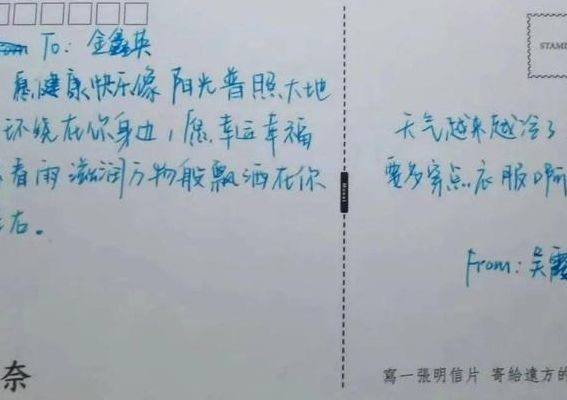 To: 金鑫英
愿健康快乐像阳光普照大地
环绕在你身边,愿幸运幸福
春雨滋润万物般飘洒在你
左右。
天气越来越冷了
要多穿点衣服啊
From: 吴霞
STAMP
奈
寫一張明信片 寄給遠方的